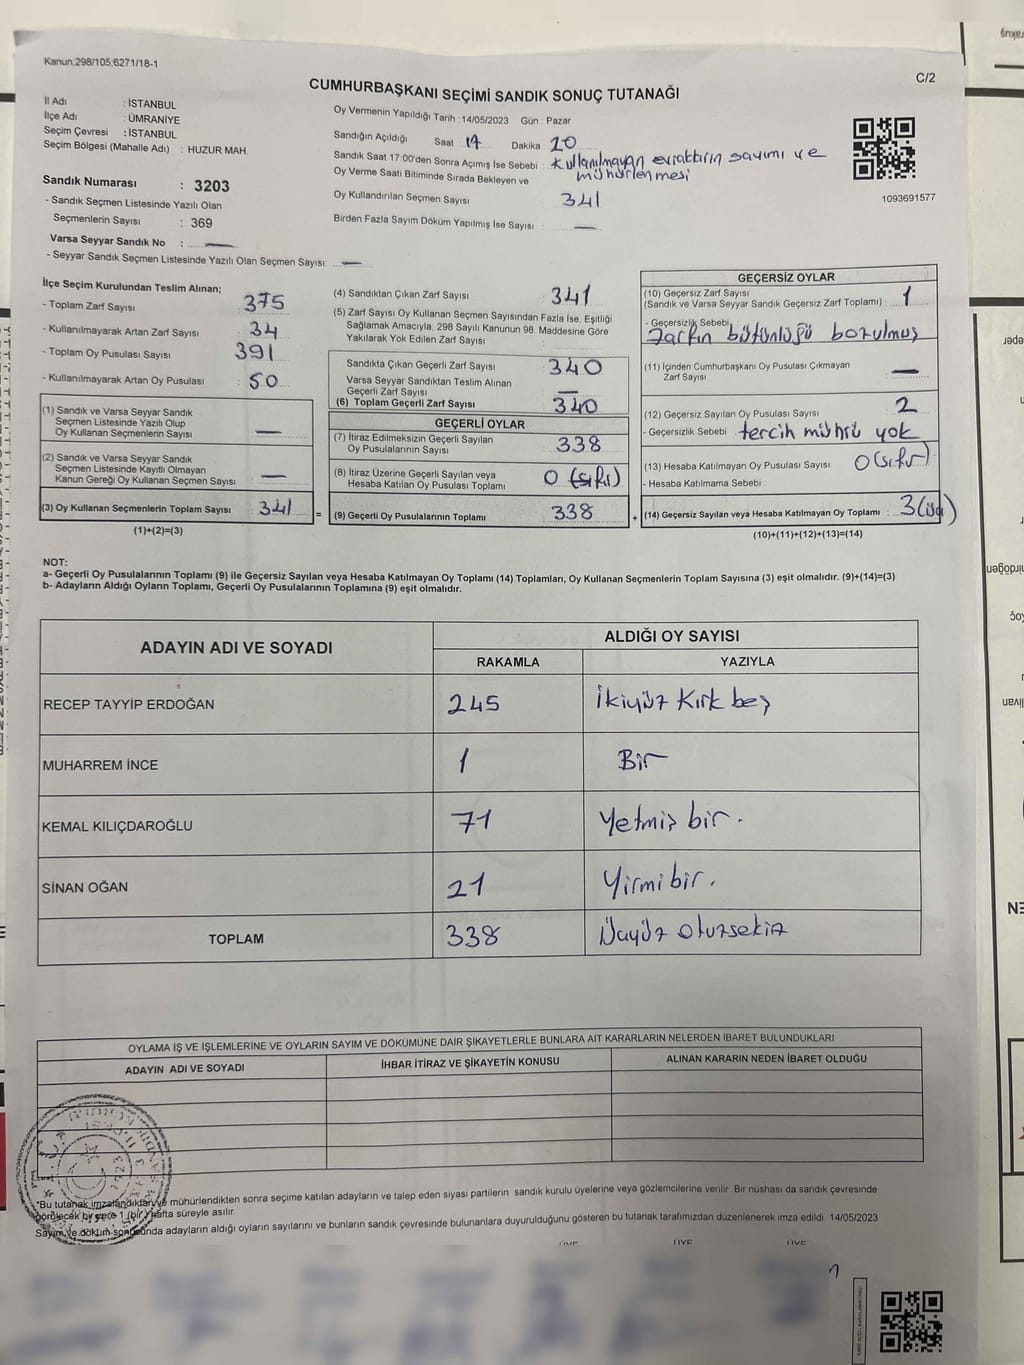 Kanun,298/105;6271/18-1
C/2
CUMHURBAŞKANI SEÇİMİ SANDIK SONUÇ TUTANAĞI
İl Adı : İSTANBUL
İlçe Adı : ÜMRANİYE
Seçim Çevresi : İSTANBUL
Seçim Bölgesi (Mahalle Adı) : HUZUR MAH.
Sandık Numarası : 3203
- Sandık Seçmen Listesinde Yazılı Olan
Seçmenlerin Sayısı : 369
Varsa Seyyar Sandık No : —
- Seyyar Sandık Seçmen Listesinde Yazılı Olan Seçmen Sayısı: —
Oy Vermenin Yapıldığı Tarih : 14/05/2023 Gün : Pazar
Sandığın Açıldığı Saat 17 Dakika : 20
Sandık Saat 17:00'den Sonra Açımış İse Sebebi : Kullanılmayan evrakların sayımı ve
mühürlenmesi
Oy Verme Saati Bitiminde Sırada Bekleyen ve
Oy Kullandırılan Seçmen Sayısı 341
Birden Fazla Sayım Döküm Yapılmış İse Sayısı : —
1093691577
İlçe Seçim Kurulundan Teslim Alınan;
- Toplam Zarf Sayısı 375
- Kullanılmayarak Artan Zarf Sayısı : 34
- Toplam Oy Pusulası Sayısı : 391
- Kullanılmayarak Artan Oy Pusulası : 50
(1) Sandık ve Varsa Seyyar Sandık
Seçmen Listesinde Yazılı Olup
Oy Kullanan Seçmenlerin Sayısı : —
(2) Sandık ve Varsa Seyyar Sandık
Seçmen Listesinde Kayıtlı Olmayan
Kanun Gereği Oy Kullanan Seçmen Sayısı : —
(3) Oy Kullanan Seçmenlerin Toplam Sayısı : 341 =
(1)+(2)=(3)
(4) Sandıktan Çıkan Zarf Sayısı 341
(5) Zarf Sayısı Oy Kullanan Seçmen Sayısından Fazla İse, Eşitliği
Sağlamak Amacıyla; 298 Sayılı Kanunun 98. Maddesine Göre
Yakılarak Yok Edilen Zarf Sayısı
Sandıkta Çıkan Geçerli Zarf Sayısı 340
Varsa Seyyar Sandıktan Teslim Alınan
Geçerli Zarf Sayısı —
(6) Toplam Geçerli Zarf Sayısı 340
GEÇERLİ OYLAR
(7) İtiraz Edilmeksizin Geçerli Sayılan
Oy Pusulalarının Sayısı : 338
(8) İtiraz Üzerine Geçerli Sayılan veya
Hesaba Katılan Oy Pusulası Toplamı 0 (sıfır)
(9) Geçerli Oy Pusulalarının Toplamı 338 +
GEÇERSİZ OYLAR
(10) Geçersiz Zarf Sayısı
(Sandık ve Varsa Seyyar Sandık Geçersiz Zarf Toplamı) : 1
- Geçersizlik Sebebi :
Zarfın bütünlüğü bozulmuş
(11) İçinden Cumhurbaşkanı Oy Pusulası Çıkmayan
Zarf Sayısı —
(12) Geçersiz Sayılan Oy Pusulası Sayısı : 2
- Geçersizlik Sebebi : tercih mührü yok
(13) Hesaba Katılmayan Oy Pusulası Sayısı : 0 (sıfır)
- Hesaba Katılmama Sebebi :
(14) Geçersiz Sayılan veya Hesaba Katılmayan Oy Toplamı : 3 (üç)
(10)+(11)+(12)+(13)=(14)
NOT:
a- Geçerli Oy Pusulalarının Toplamı (9) ile Geçersiz Sayılan veya Hesaba Katılmayan Oy Toplamı (14) Toplamları, Oy Kullanan Seçmenlerin Toplam Sayısına (3) eşit olmalıdır. (9)+(14)=(3)
b- Adayların Aldığı Oyların Toplamı, Geçerli Oy Pusulalarının Toplamına (9) eşit olmalıdır.
ADAYIN ADI VE SOYADI
ALDIĞI OY SAYISI
RAKAMLA YAZIYLA
RECEP TAYYİP ERDOĞAN 245 İkiyüz Kırk beş
MUHARREM İNCE 1 Bir
KEMAL KILIÇDAROĞLU 71 Yetmiş bir.
SİNAN OĞAN 21 Yirmi bir.
TOPLAM 338 Üçyüz otuzsekiz
OYLAMA İŞ VE İŞLEMLERİNE VE OYLARIN SAYIM VE DÖKÜMÜNE DAİR ŞİKAYETLERLE BUNLARA AİT KARARLARIN NELERDEN İBARET BULUNDUKLARI
ADAYIN ADI VE SOYADI İHBAR İTİRAZ VE ŞİKAYETİN KONUSU ALINAN KARARIN NEDEN İBARET OLDUĞU
*Bu tutanak imzalandıktan ve mühürlendikten sonra seçime katılan adayların ve talep eden siyasi partilerin sandık kurulu üyelerine veya gözlemcilerine verilir. Bir nüshası da sandık çevresinde
görülecek bir yere 1 (bir) hafta süreyle asılır.
Sayım ve döküm sonucunda adayların aldığı oyların sayılarını ve bunların sandık çevresinde bulunanlara duyurulduğunu gösteren bu tutanak tarafımızdan düzenlenerek imza edildi. 14/05/2023
ÜYE ÜYE ÜYE